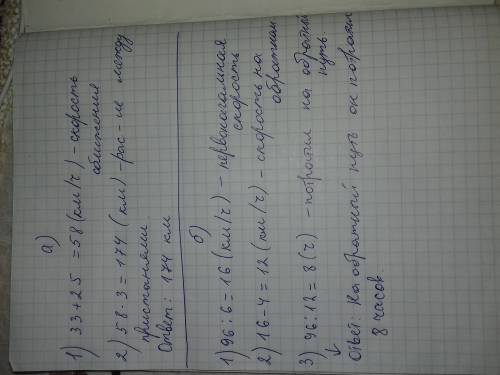 а)
1) 33+25 = 58 (км/ч) - скорость
сближения
2) 58·3 = 174 (км) - рас-ие между
пристанями
Ответ: 174 км
б)
1) 96:6 = 16 (км/ч) - первоначальная
скорость
2) 16-4 = 12 (км/ч) - скорость на
обратном
3) 96:12 = 8 (ч) - потратил на обратный
путь.
↓
Ответ: На обратный путь он потратил
8 часов